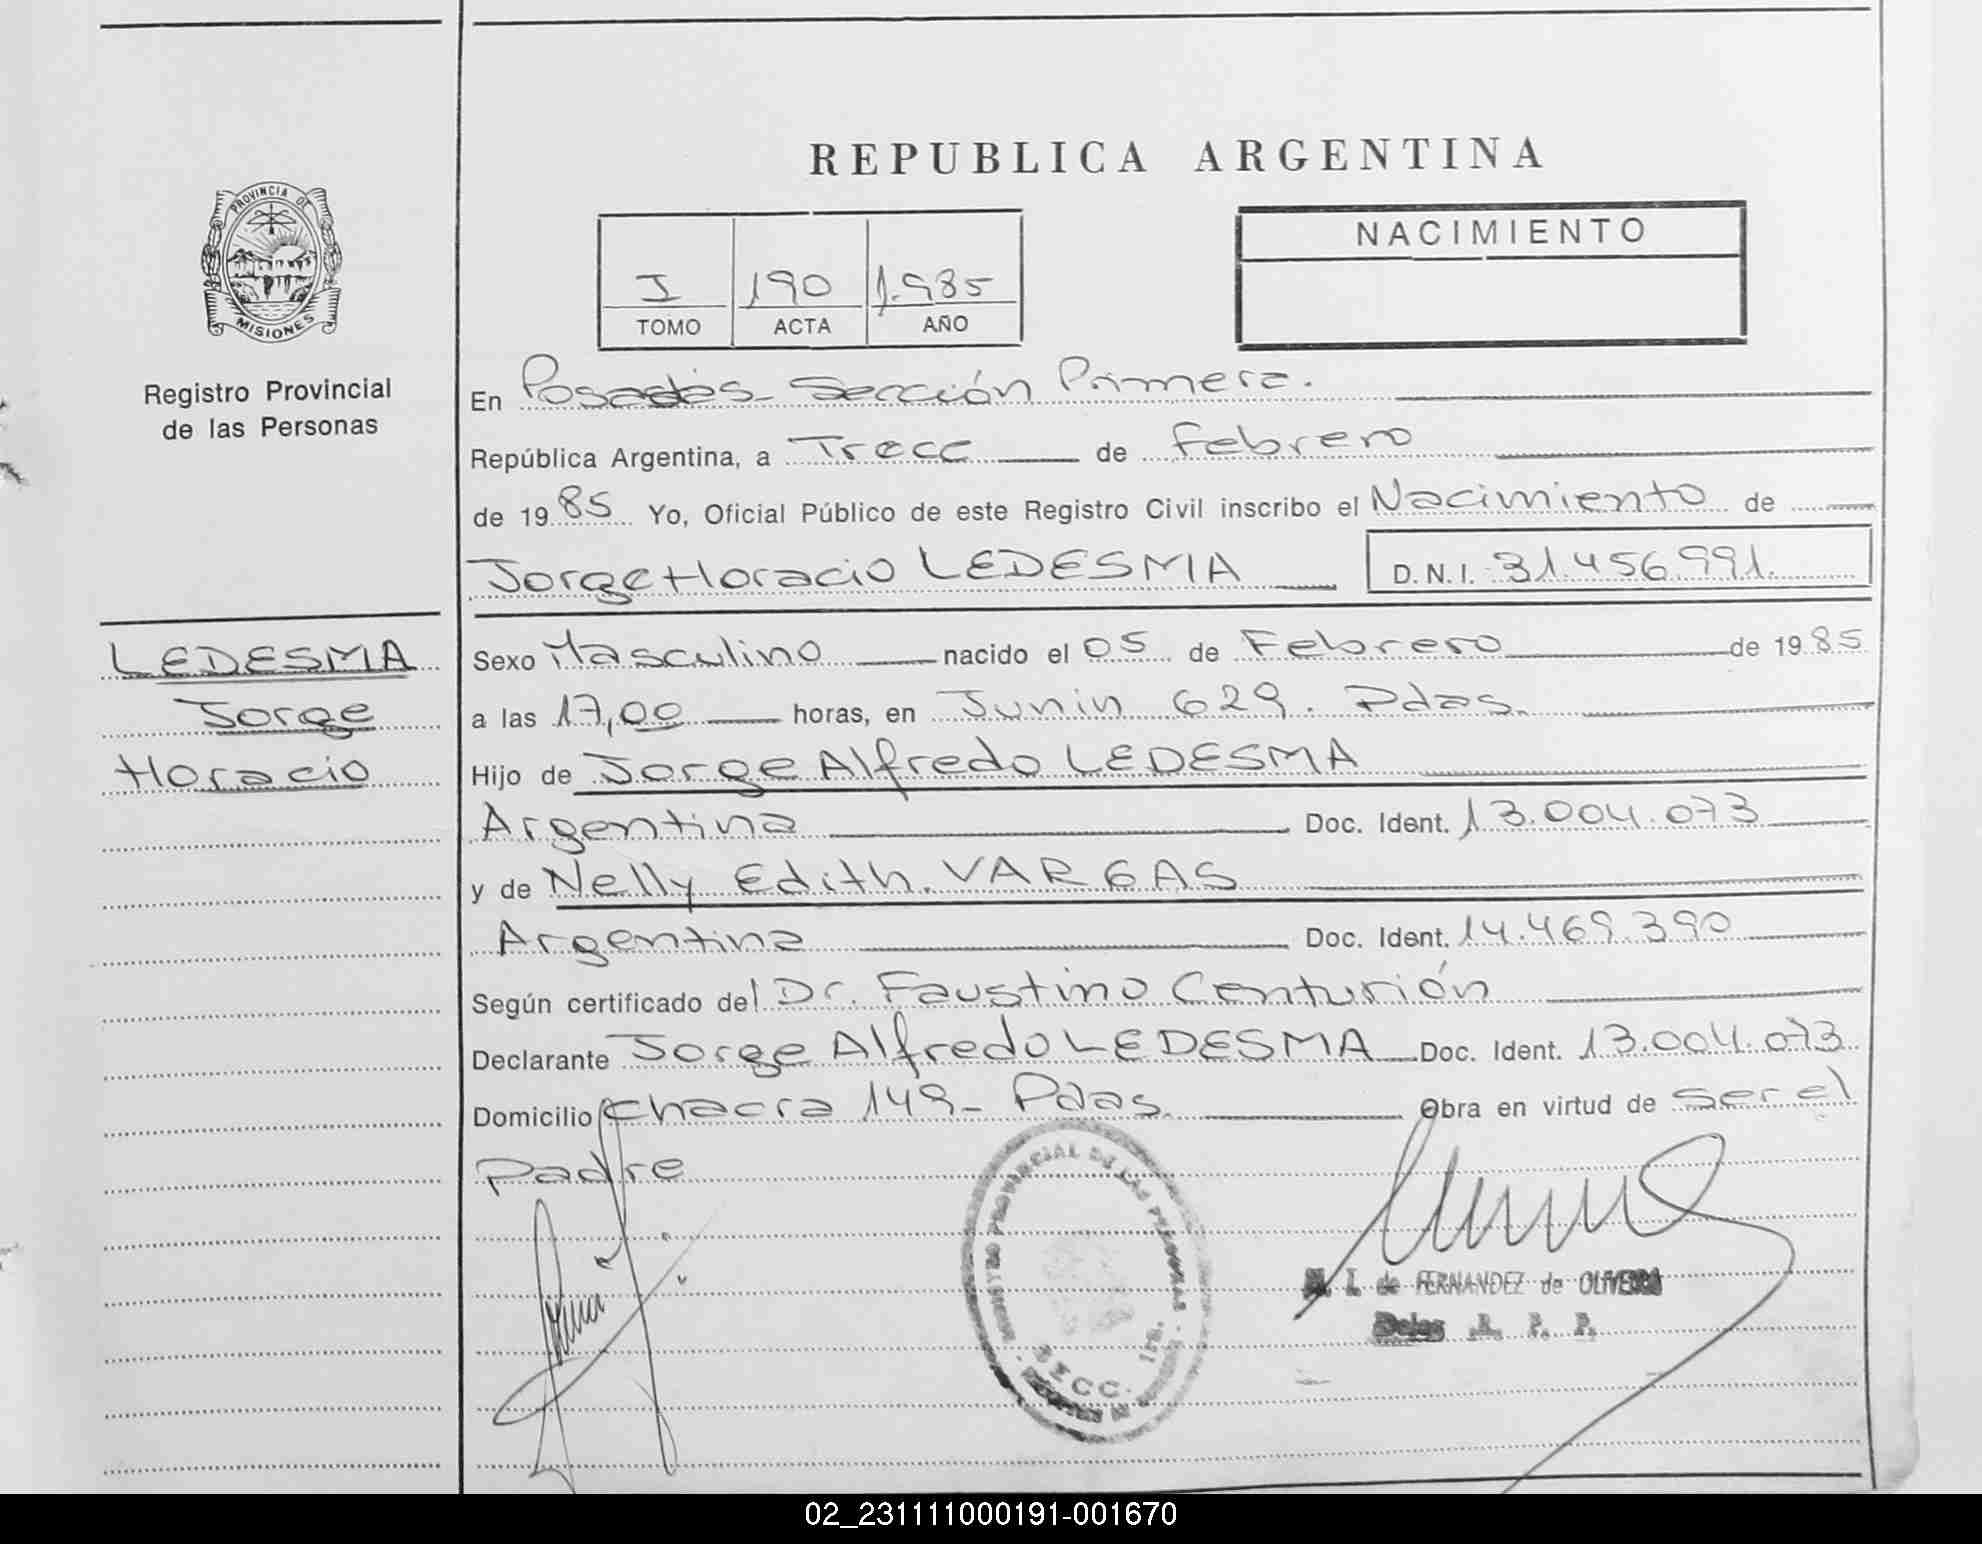 REPUBLICA ARGENTINA
PROVINCIA DE
MISIONES
Registro Provincial
de las Personas
I 190 1.985
TOMO ACTA AÑO
NACIMIENTO
En Posadas- Sección Primera.
República Argentina, a Trece de Febrero
de 1985 Yo, Oficial Público de este Registro Civil inscribo el Nacimiento de
Jorge Horacio LEDESMA D.N.I. 31.456.991.
LEDESMA
Jorge
Horacio
Sexo Masculino nacido el 05 de Febrero de 1985
a las 17,00 horas, en Junin 629. Pdas.
Hijo de Jorge Alfredo LEDESMA
Argentina Doc. Ident. 13.004.073
y de Nelly Edith. VARGAS
Argentina Doc. Ident. 14.469.390
Según certificado del Dr. Faustino Centurión
Declarante Jorge Alfredo LEDESMA Doc. Ident. 13.004.073
Domicilio Chacra 149- Pdas. Obra en virtud de ser el
Padre
PROVINCIAL DE LAS PERSONAS
SECC. 1ra.
M. I. de FERNANDEZ de OLIVEIRA
Deleg R. P. P.
02_231111000191-001670